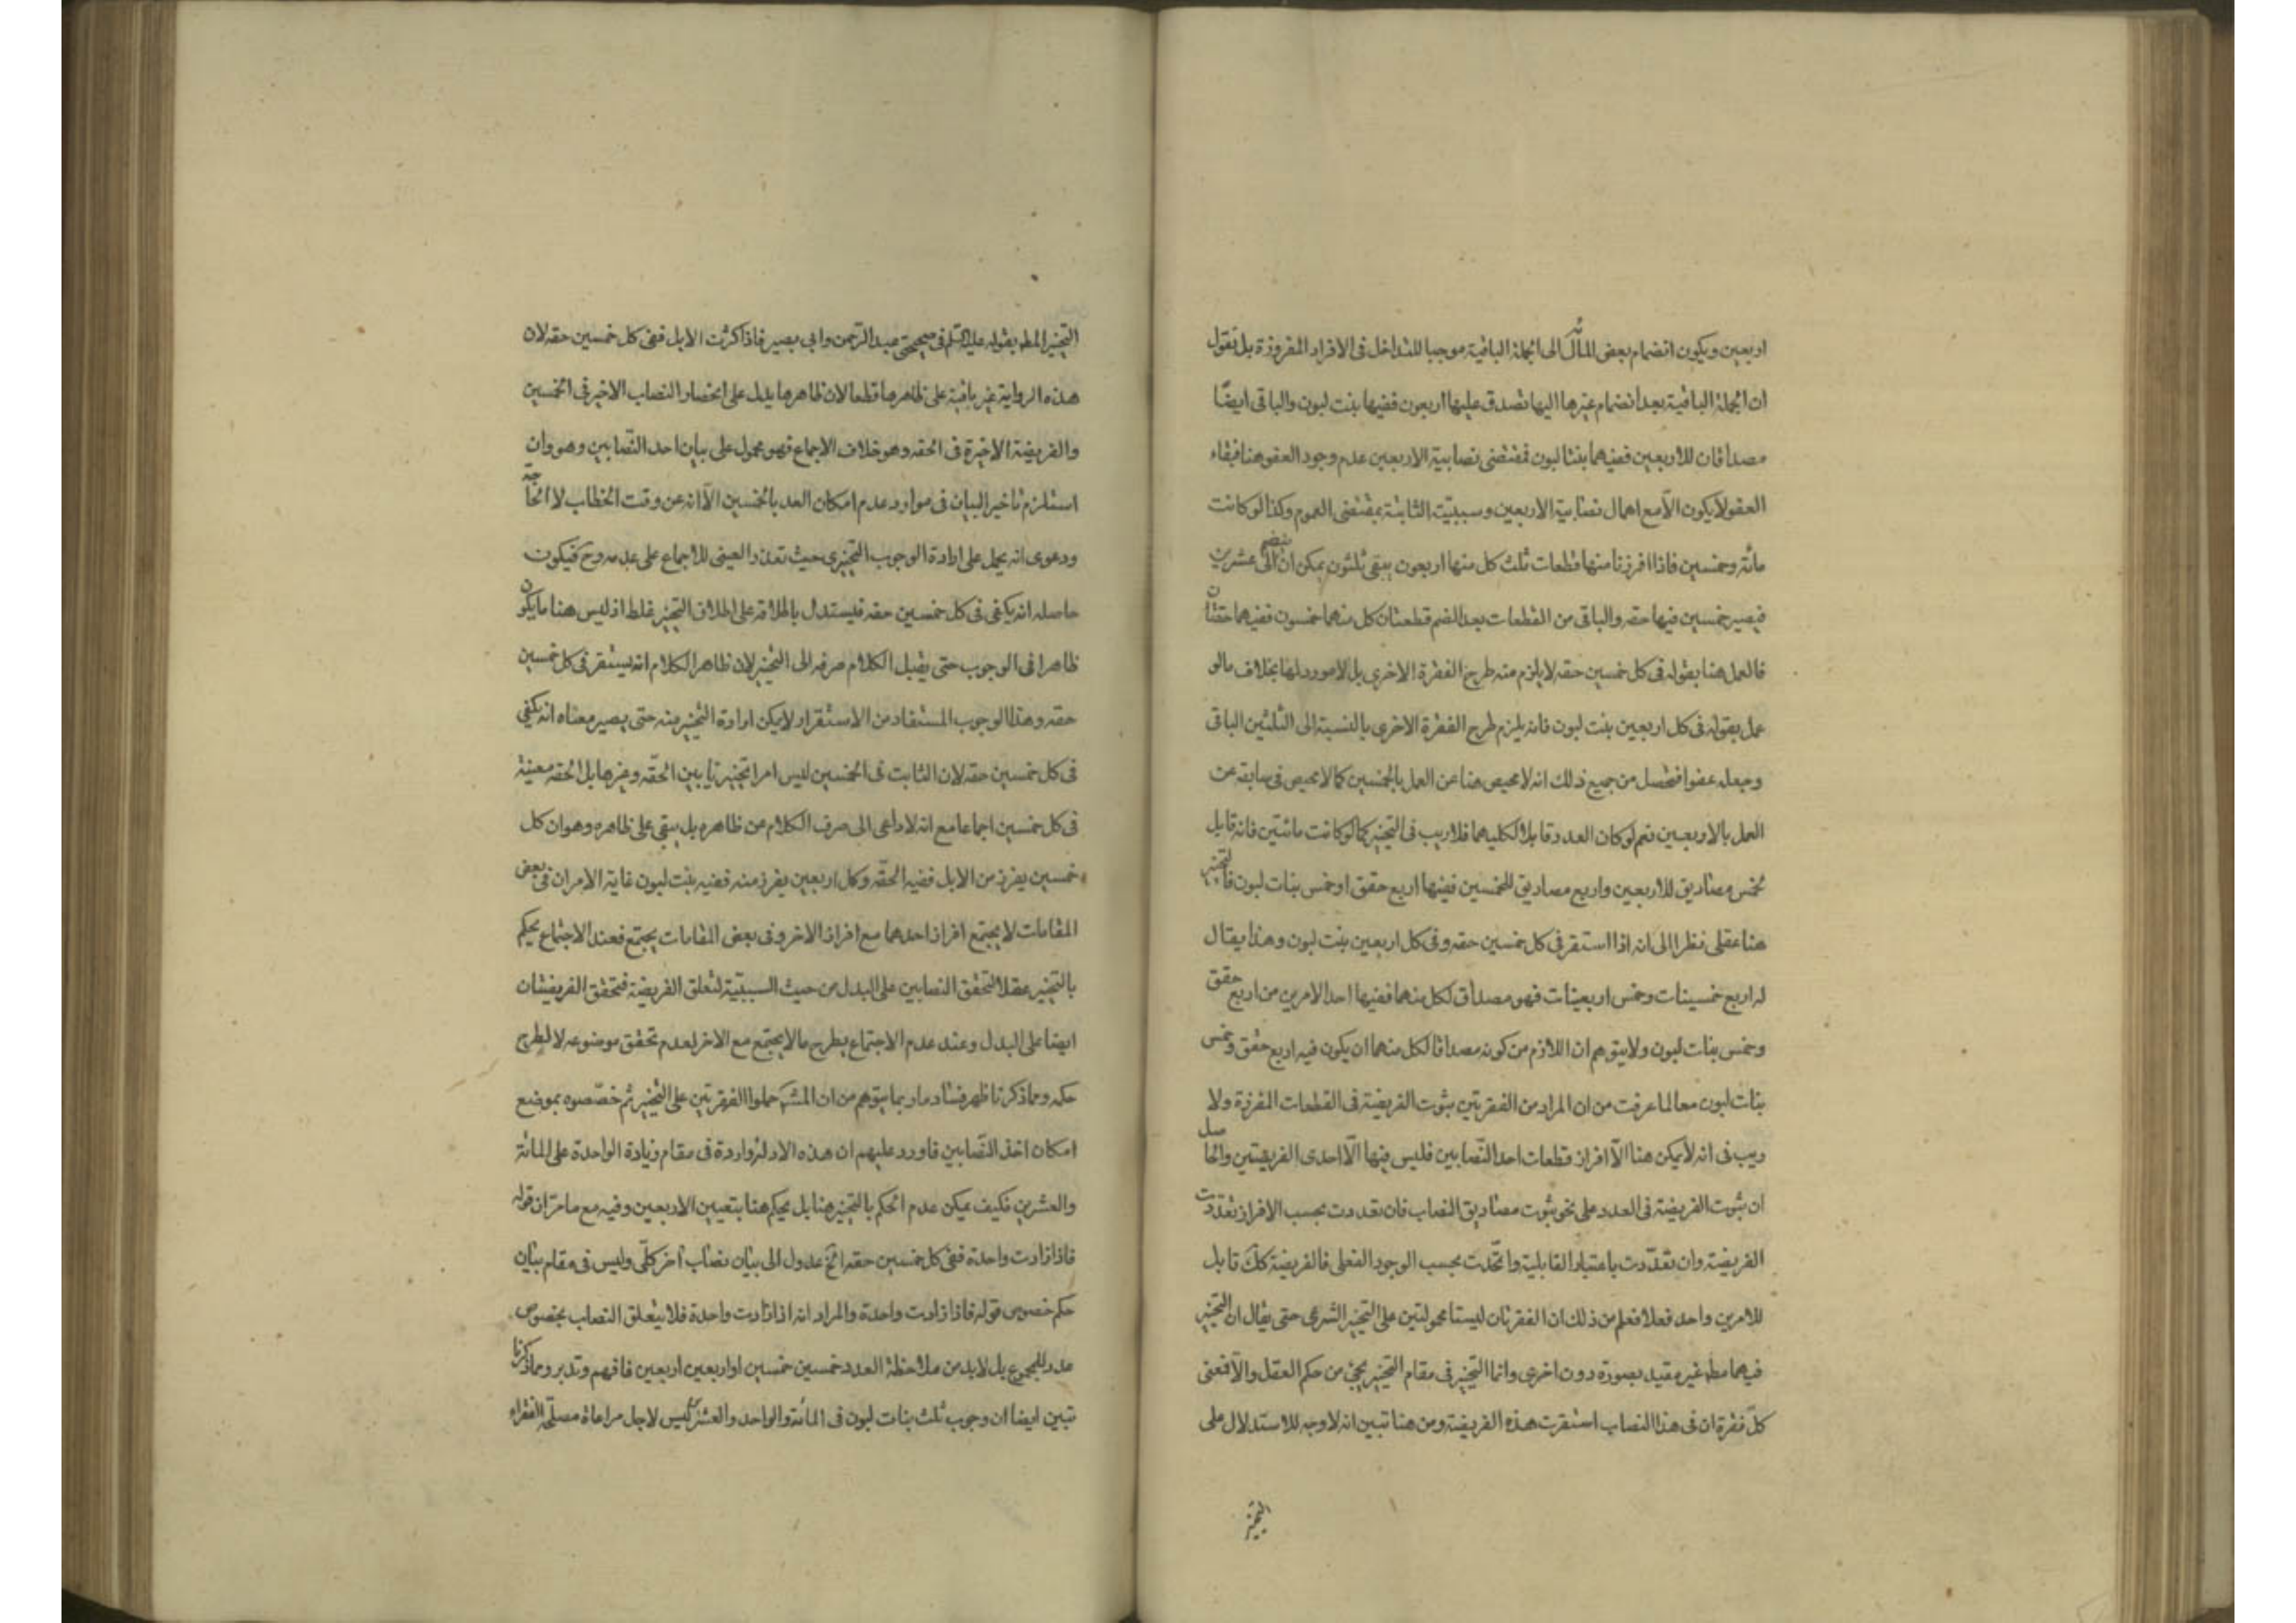 اربعين ويكون انضمام بعض الى الجملة الباقية موجبا للتداخل فى الافراد المفروزة بل نقول
ان الجملة الباقية بعد انضمام غيرها اليها تصدق عليها اربعون ففيها بنت لبون والباقى ايضا
مصداقان للاربعين ففيهما بنتا لبون فمقتضى نصابية الاربعين عدم وجود العفو هنا فبقاء
العفو لا يكون الا مع اهمال نصابية الاربعين وسببيته الثابتة بمقتضى العموم وكذا لو كانت
مائة وخمسين فاذا افرزنا منها قطعات ثلث كل منها اربعون يبقى ثلثون يمكن ان ينضم الى عشرين
فيصير خمسين فيها حقه والباقى من القطعات بعد الضم قطعتان كل منهما خمسون ففيهما حقتان
فالعمل هنا بقوله فى كل خمسين حقه لا يلزم منه طرح الفقرة الاخرى بل لا مورد لها بخلاف ما لو
عمل بقوله فى كل اربعين بنت لبون فانه يلزم طرح الفقرة الاخرى بالنسبة الى الثلثين الباقى
وجعله عفوا فتحصل من جميع ذلك انه لا محيص هنا عن العمل بالخمسين كما لا محيص فى سابقه عن
العمل بالاربعين نعم لو كان العدد قابلا لكليهما فلا ريب فى التخيير كما لو كانت مائتين فانه قابل
لخمس مصاديق للاربعين واربع مصاديق للخمسين ففيها اربع حقق او خمس بنات لبون فالتخيير
هنا عقلى نظرا الى انه اذا استقر فى كل خمسين حقه وفى كل اربعين بنت لبون وهذا يقال
له اربع خمسينات وخمس اربعينات فهو مصداق لكل منهما ففيها احد الامرين من اربع حقق
وخمس بنات لبون ولا يتوهم ان اللازم من كونه مصداقا لكل منهما ان يكون فيه اربع حقق وخمس
بنات لبون معا لما عرفت من ان المراد من الفقرتين ثبوت الفريضة فى القطعات المفرزة ولا
ريب فى انه لا يمكن هنا الا افراز قطعات احد النصابين فليس فيها الا احدى الفريضتين والحاصل
ان ثبوت الفريضة فى العدد على نحو ثبوت مصاديق النصاب فان تعددت بحسب الافراز تعددت
الفريضة وان تعددت باعتبار القابلية واتحدت بحسب الوجود الفعلى فالفريضة كك قابل
للامرين واحد فعلا فعلم من ذلك ان الفقرتان ليستا محمولتين على التخيير الشرعى حتى يقال ان التخيير
فيهما مطلقا غير مقيد بصورة دون اخرى وانما التخيير فى مقام التخيير يجئ من حكم العقل والا فمعنى
كل فقرة ان فى هذا النصاب استقرت هذه الفريضة ومن هنا تبين انه لا وجه للاستدلال على
التخيير
التخيير المط بقوله عليه السلم فى صحيحتى عبد الرحمن وابى بصير فاذا كثرت الابل ففى كل خمسين حقه لان
هذه الرواية غير باقية على ظاهرها قطعا لان ظاهرها يدل على انحصار النصاب الاخير فى الخمسين
والفريضة الاخيرة فى الحقه وهو خلاف الاجماع فهو محمول على بيان احد النصابين وهو وان
استلزم تاخير البيان فى موارد عدم امكان العد بالخمسين الا انه عن وقت الخطاب لا الحاجة
ودعوى انه يحمل على ارادة الوجوب التخييرى حيث تعذر العينى للاجماع على عدمه وح فيكون
حاصله انه يكفى فى كل خمسين حقه فيستدل باطلاقه على اطلاق التخيير غلط اذ ليس هنا ما يكون
ظاهرا فى الوجوب حتى يقبل الكلام صرفه الى التخيير لان ظاهر الكلام انه يستقر فى كل خمسين
حقه وهذا الوجوب المستفاد من الاستقرار لا يمكن ارادة التخيير منه حتى يصير معناه انه يكفى
فى كل خمسين حقه لان الثابت فى الخمسين ليس امرا تخييريا بين الحقه وغيرها بل الحقه معينة
فى كل خمسين اجماعا مع انه لا داعى الى صرف الكلام من ظاهره بل يبقى على ظاهره وهو ان كل
خمسين يفرز من الابل ففيه الحقه وكل اربعين يفرز منه ففيه بنت لبون غاية الامر ان فى بعض
المقامات لا يجتمع افراز احدهما مع افراز الاخر وفى بعض المقامات يجتمع فعند الاجتماع يحكم
بالتخيير عقلا لتحقق النصابين على البدل من حيث السببية لتعلق الفريضة فتحقق الفريضتان
ايضا على البدل وعند عدم الاجتماع يطرح ما لا يجتمع مع الاخر لعدم تحقق موضوعه لا لطرح
حكمه ومما ذكرنا ظهر فساد ما ربما يتوهم من ان حملوا الفقرتين على التخيير ثم خصصوه بموضع
امكان اخذ النصابين فاورد عليهم ان هذه الادلة واردة فى مقام زيادة الواحدة على المائة
والعشرين فكيف يمكن عدم الحكم بالتخيير هنا بل يحكم هنا بتعيين الاربعين وفيه مع ما مر ان قوله
فاذا زادت واحدة ففى كل خمسين حقه الخ عدول الى بيان نصاب اخر كلى وليس فى مقام بيان
حكم خصوص قوله فاذا زادت واحدة والمراد انه اذا زادت واحدة فلا يتعلق النصاب بخصوص
عدد المجموع بل لا بد من ملاحظة العدد خمسين خمسين او اربعين اربعين فافهم وتدبر ومما ذكرنا
تبين ايضا ان وجوب ثلث بنات لبون فى المائة والواحد والعشرين ليس لاجل مراعاة مصلحة الفقراء